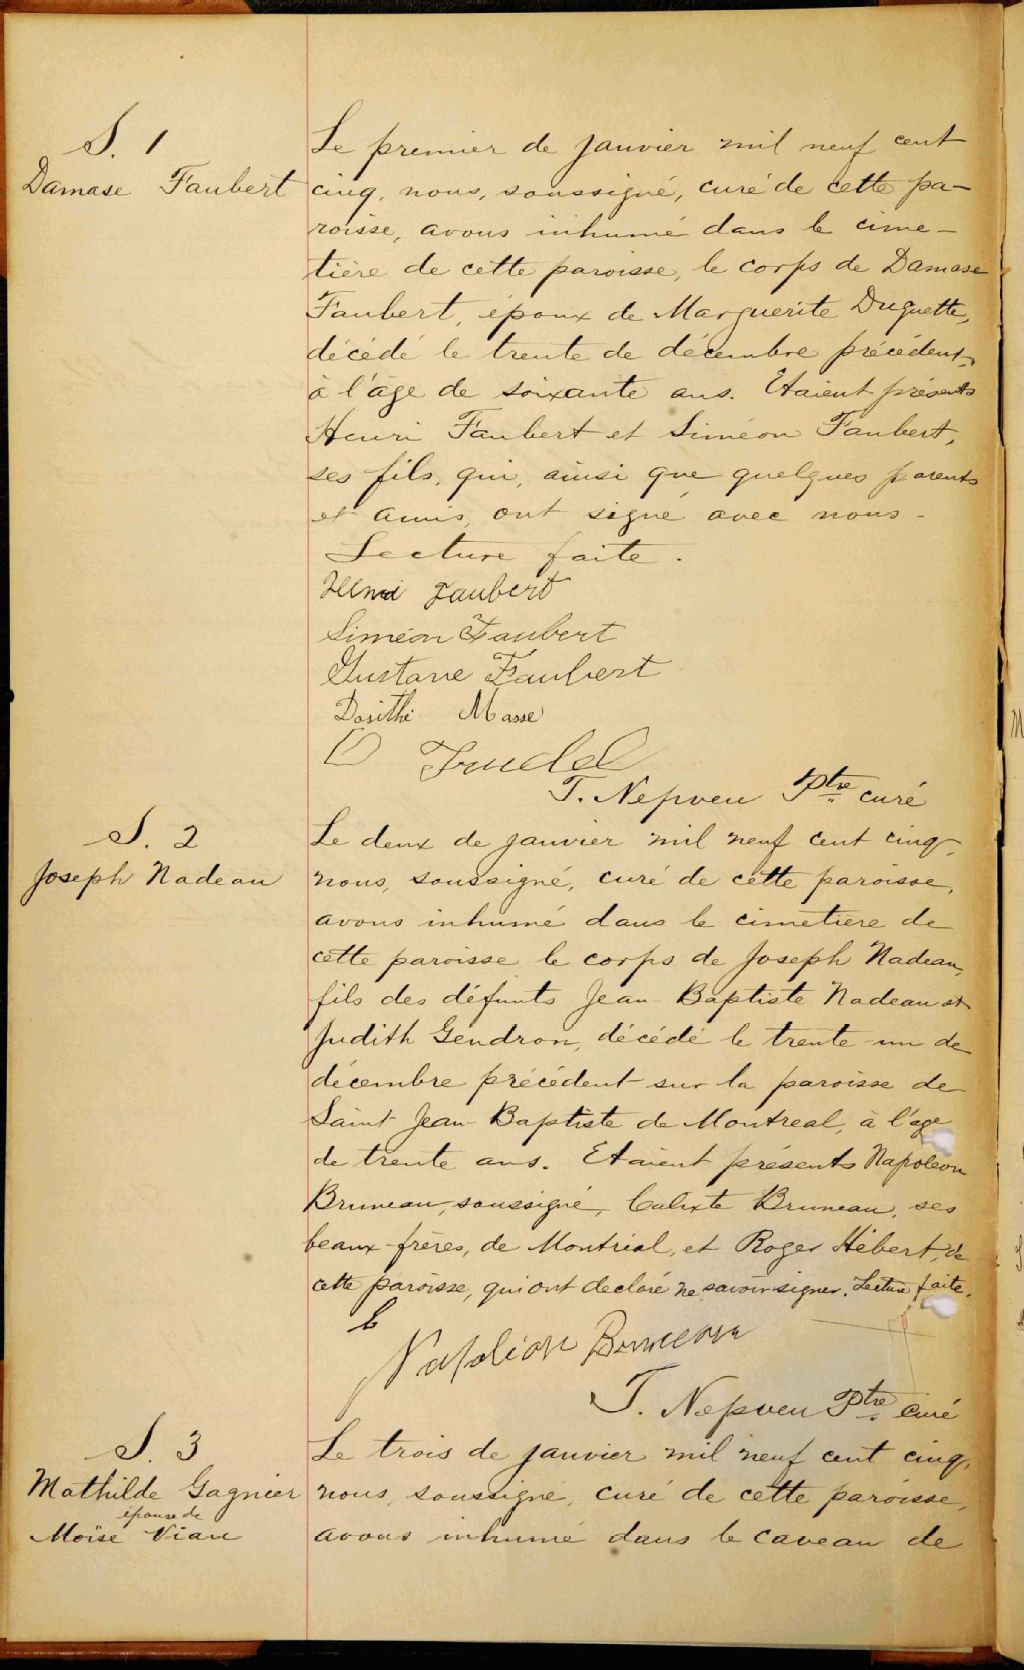 S. 1
Damase Faubert
Le premier de janvier mil neuf cent
cinq, nous, soussigné, curé de cette pa-
roisse, avons inhumé dans le cime-
tière de cette paroisse, le corps de Damase
Faubert, époux de Marguerite Duquette,
décédé le trente de décembre précédent,
à l'âge de soixante ans. Etaient présents
Henri Faubert et Siméon Faubert,
ses fils, qui, ainsi que quelques parents
et amis, ont signé avec nous.
Lecture faite.
Henri Faubert
Siméon Faubert
Gustave Faubert
Dosithé Masse
D Trudel
T. Nepveu Ptre curé
S. 2
Joseph Nadeau
Le deux de janvier mil neuf cent cinq,
nous, soussigné, curé de cette paroisse,
avons inhumé dans le cimetière de
cette paroisse le corps de Joseph Nadeau,
fils des défunts Jean-Baptiste Nadeau et
Judith Gendron, décédé le trente-un de
décembre précédent sur la paroisse de
Saint Jean-Baptiste de Montreal, à l'age
de trente ans. Etaient présents Napoléon
Bruneau, soussigné, Calixte Bruneau, ses
beaux-frères, de Montréal, et Roger Hébert, de
cette paroisse, qui ont declaré ne savoir signer. Lecture faite.
Napoléon Bruneau
T. Nepveu Ptre curé
S. 3
Mathilde Gagnier
épouse de
Moïse Viau
Le trois de janvier mil neuf cent cinq,
nous, soussigné, curé de cette paroisse,
avons inhumé dans le caveau de